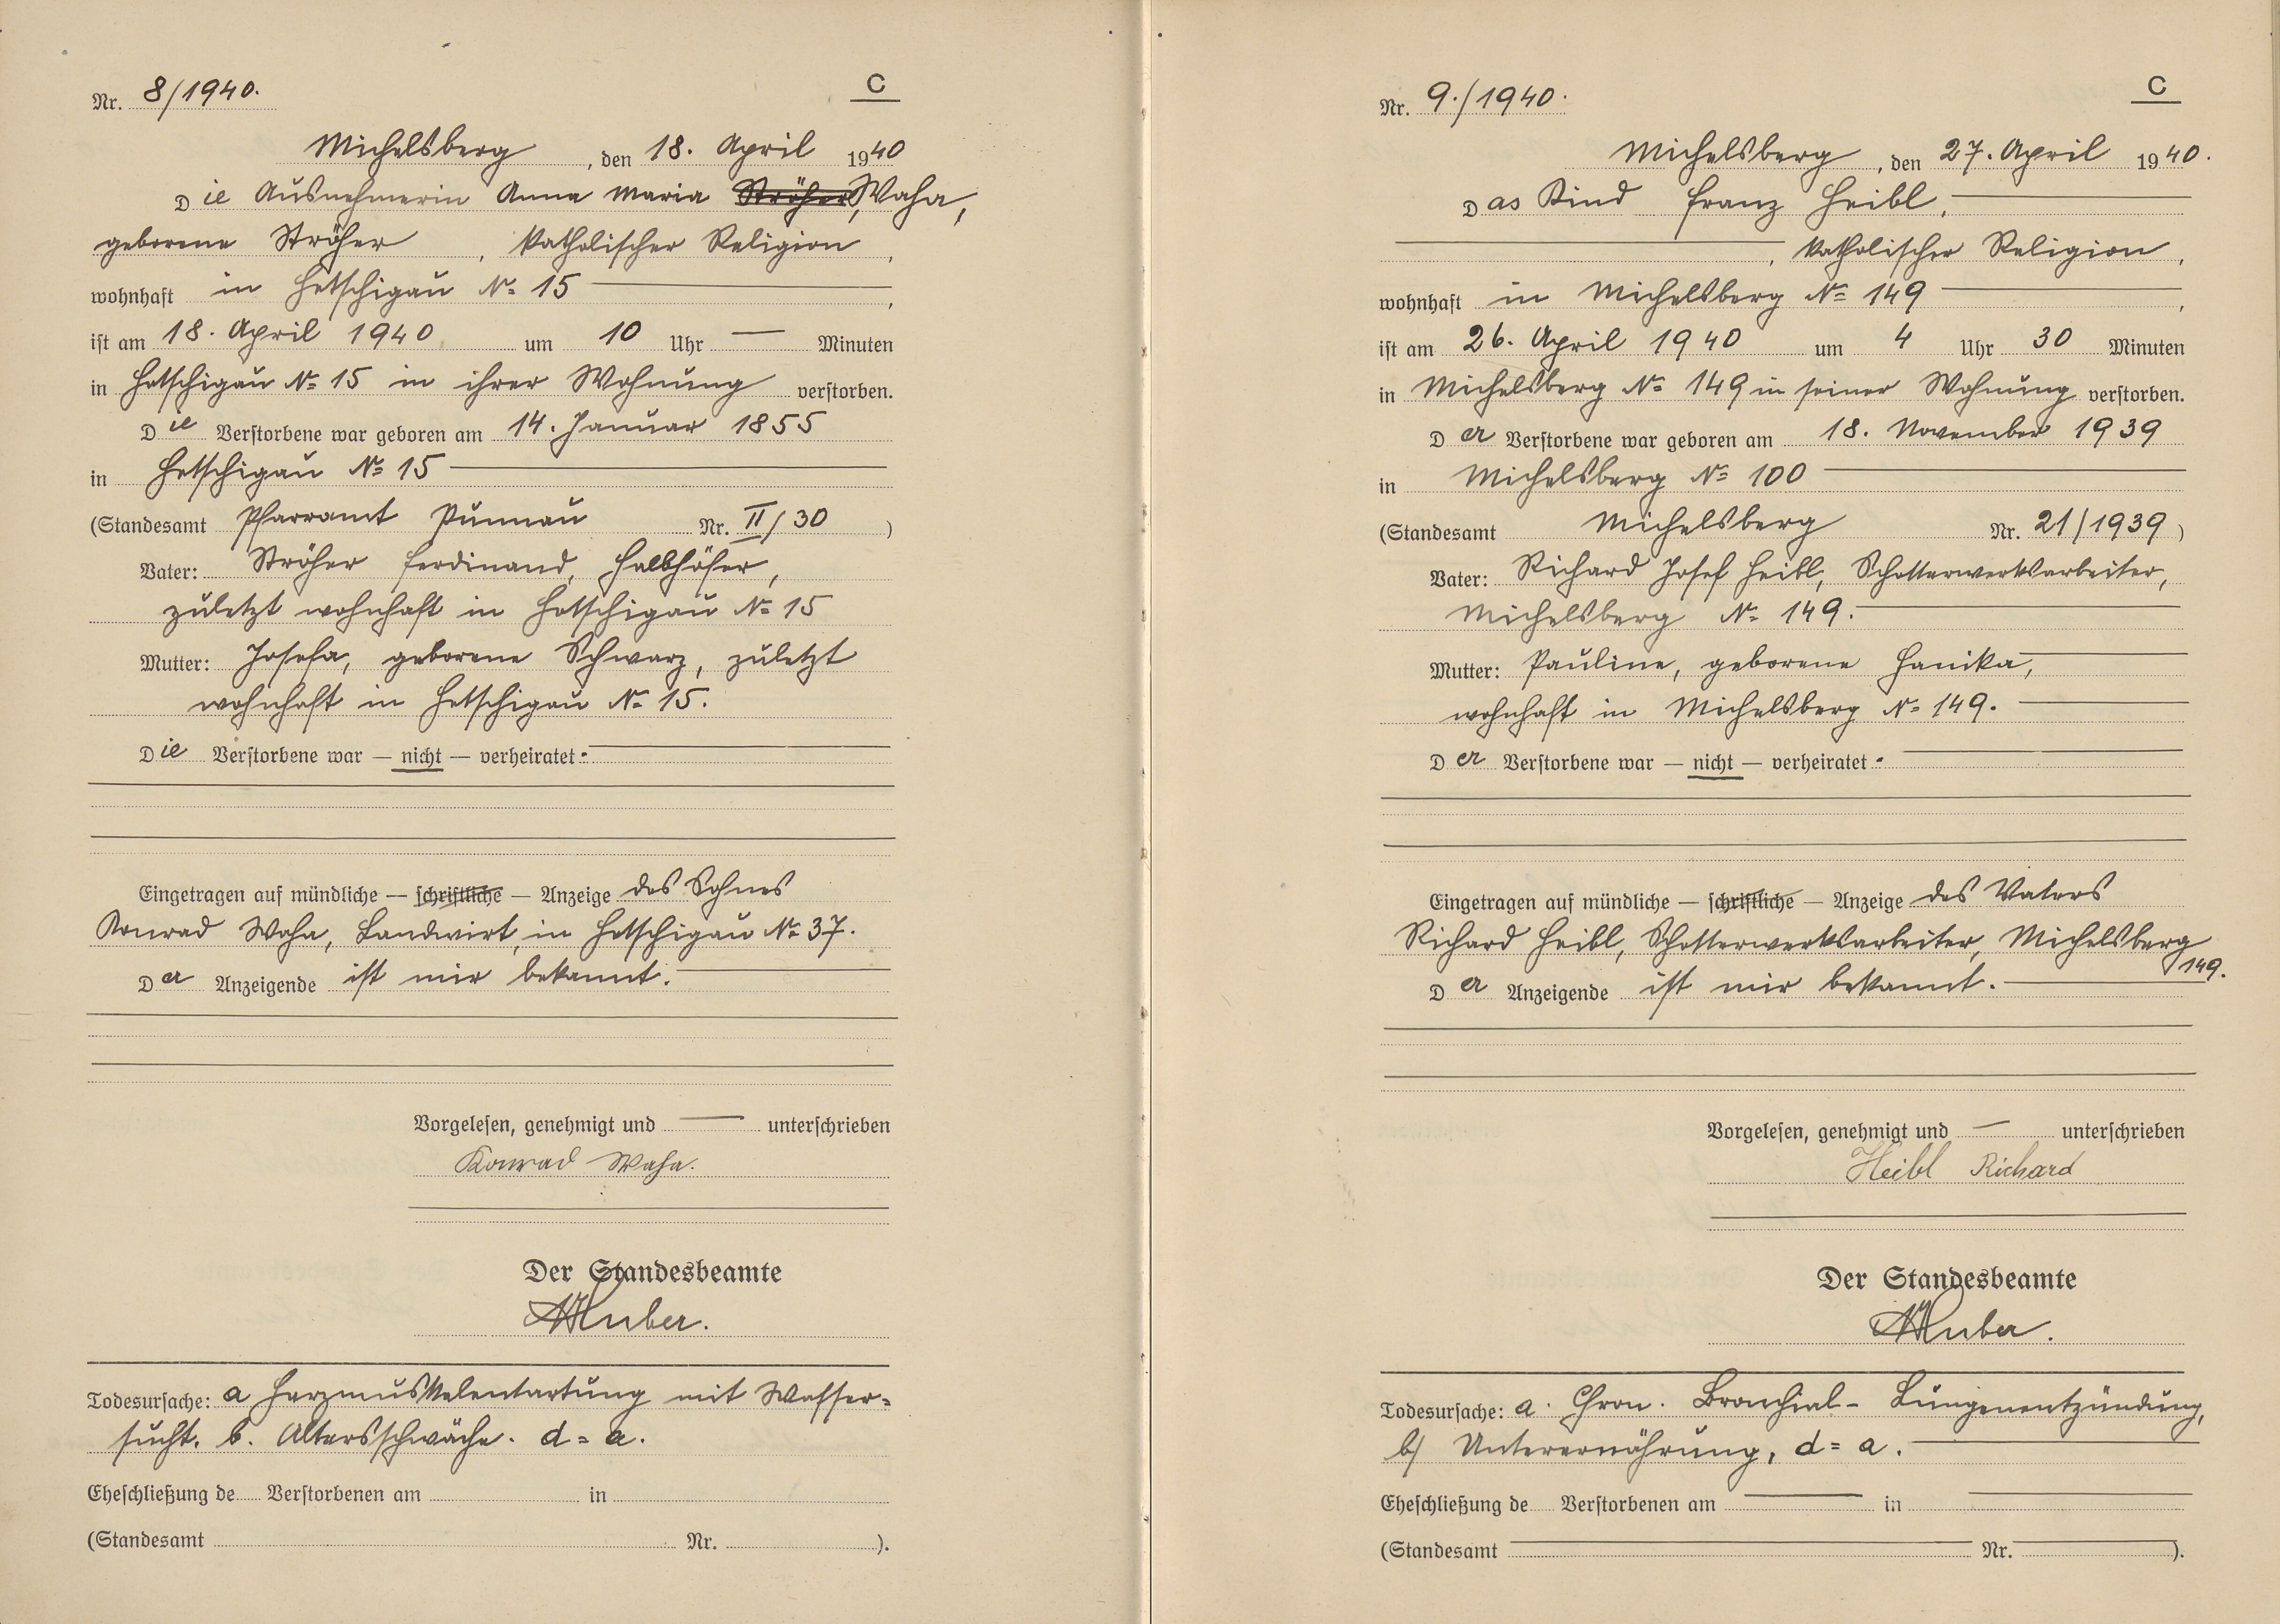 Nr. 8/1940.
C
Michelsberg, den 18. April 1940
Die Ausnehmerin Anna Maria Ströher, Waha,
geborene Ströher, katholischer Religion,
wohnhaft in Hetschigau No 15,
ist am 18. April 1940 um 10 Uhr — Minuten
in Hetschigau No 15 in ihrer Wohnung verstorben.
Die Verstorbene war geboren am 14. Januar 1855
in Hetschigau No 15
(Standesamt Pfarramt Punnau Nr. II/30)
Vater: Ströher Ferdinand, Halbhöfer,
zuletzt wohnhaft in Hetschigau No 15
Mutter: Josefa, geborene Schwarz, zuletzt
wohnhaft in Hetschigau No 15.
Die Verstorbene war — nicht — verheiratet.
Eingetragen auf mündliche — schriftliche — Anzeige des Sohnes
Konrad Waha, Landwirt, in Hetschigau No 37.
Der Anzeigende ist mir bekannt.
Vorgelesen, genehmigt und — unterschrieben
Konrad Waha.
Der Standesbeamte
Huber.
Todesursache: a Herzmuskelentartung mit Wasser=
sucht. b. Altersschwäche. d = a.
Eheschließung de Verstorbenen am in
(Standesamt Nr. ).
Nr. 9./1940.
C
Michelsberg, den 27. April 1940.
Das Kind Franz Heibl,
, katholischer Religion,
wohnhaft in Michelsberg No 149,
ist am 26. April 1940 um 4 Uhr 30 Minuten
in Michelsberg No 149 in seiner Wohnung verstorben.
Der Verstorbene war geboren am 18. November 1939
in Michelsberg No 100
(Standesamt Michelsberg Nr. 21/1939)
Vater: Richard Josef Heibl, Schotterwerksarbeiter,
Michelsberg No 149.
Mutter: Pauline, geborene Hanika,
wohnhaft in Michelsberg No 149.
Der Verstorbene war — nicht — verheiratet.
Eingetragen auf mündliche — schriftliche — Anzeige des Vaters
Richard Heibl, Schotterwerksarbeiter, Michelsberg
149.
Der Anzeigende ist mir bekannt.
Vorgelesen, genehmigt und — unterschrieben
Heibl Richard
Der Standesbeamte
Huber.
Todesursache: a. Chron. Bronchial- Lungenentzündung,
b/ Unterernährung, d = a.
Eheschließung de Verstorbenen am — in —
(Standesamt — Nr. — ).